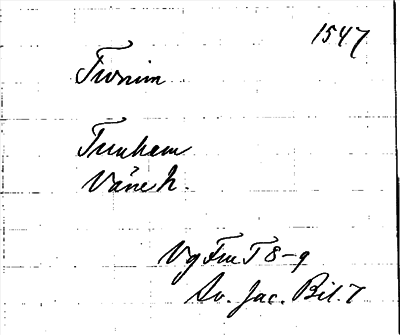 1547
Turnim
Tunhem
Väne h.
Vg Fm T 8-9
Av. Jac. Bil. 7